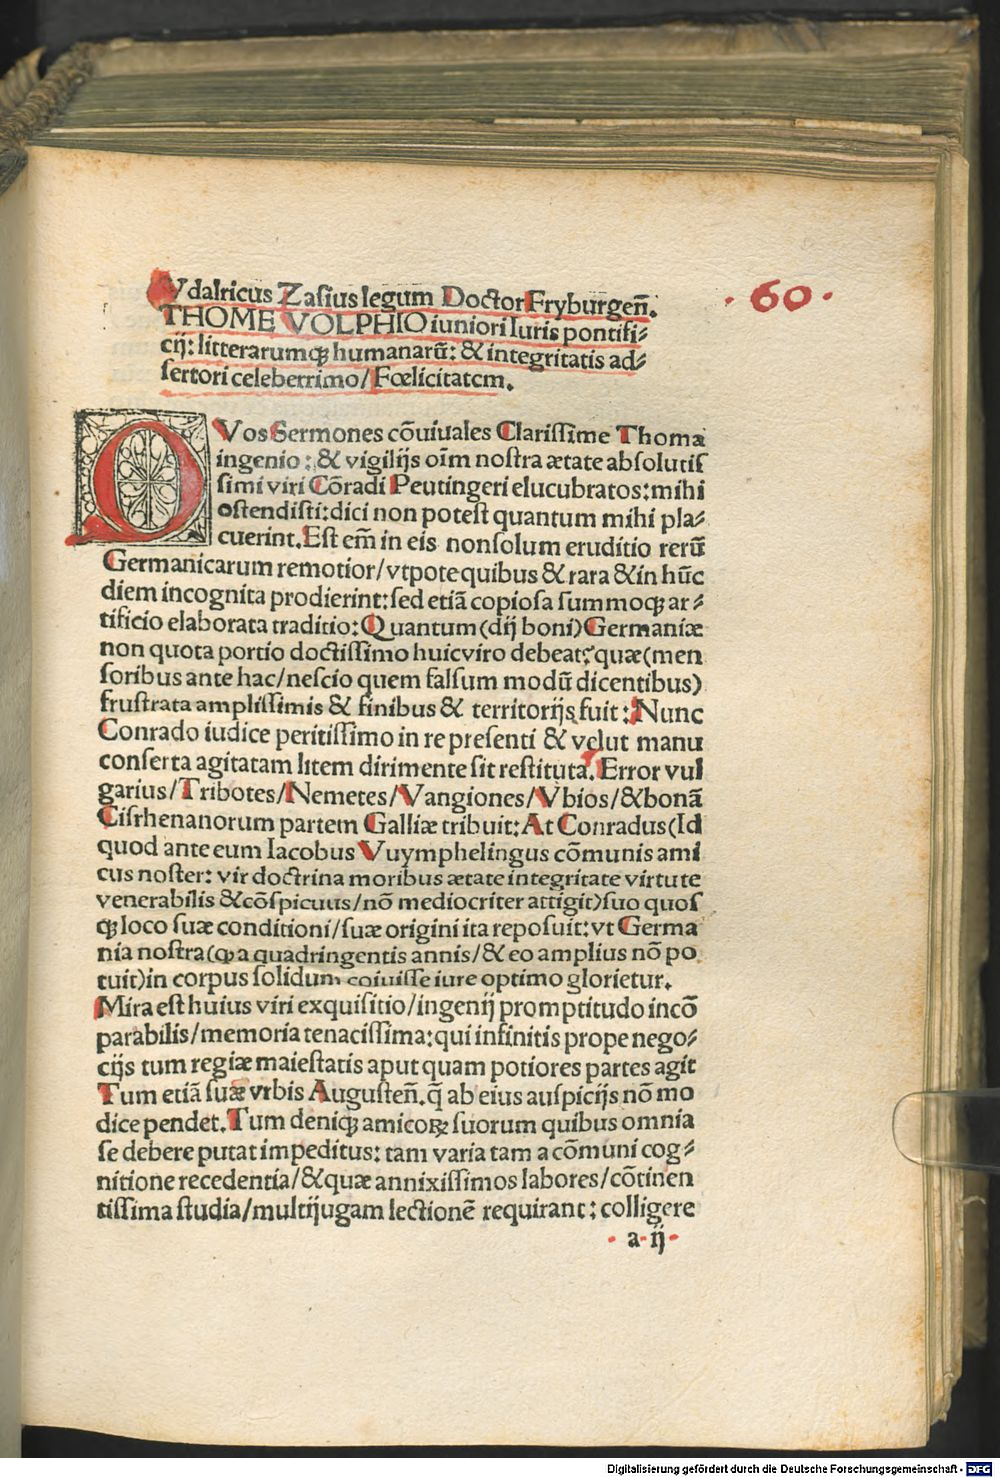 Vdalricus Zasius legum Doctor Fryburgen̄.
· 60 ·
THOME VOLPHIO iuniori Iuris pontifi⸗
cij: litterarumqꝫ humanarū: & integritatis ad⸗
sertori celeberrimo/ Fœlicitatem.
QVos Sermones cōuiuales Clarissime Thoma
ingenio: & vigilijs oīm nostra ætate absolutis
simi viri Cōradi Peutingeri elucubratos: mihi
ostendisti: dici non potest quantum mihi pla⸗
cuerint. Est em̄ in eis nonsolum eruditio rerū
Germanicarum remotior/ vtpote quibus & rara & in hūc
diem incognita prodierint: sed etiā copiosa summoqꝫ ar⸗
tificio elaborata traditio: Quantum (dij boni) Germaniæ
non quota portio doctissimo huic viro debeat: quæ (men
soribus ante hac/ nescio quem falsum modū dicentibus)
frustrata amplissimis & finibus & territorijs fuit: Nunc
Conrado iudice peritissimo in re presenti & velut manu
conserta agitatam litem dirimente sit restituta. Error vul
garius/ Tribotes/ Nemetes/ Vangiones/ Vbios/ & bonā
Cisrhenanorum partem Galliæ tribuit: At Conradus (Id
quod ante eum Iacobus Vuymphelingus cōmunis ami
cus noster: vir doctrina moribus ætate integritate virtute
venerabilis & cōspicuus/ nō mediocriter attigit) suo quos
qꝫ loco suæ conditioni/ suæ origini ita reposuit: vt Germa
nia nostra (qꝫ a quadringentis annis/ & eo amplius nō po
tuit) in corpus solidum coiuisse iure optimo glorietur.
Mira est huius viri exquisitio/ ingenij promptitudo incō
parabilis/ memoria tenacissima: qui infinitis prope nego⸗
cijs tum regiæ maiestatis aput quam potiores partes agit
Tum etiā suæ vrbis Augusten̄. q̄ ab eius auspicijs nō mo
dice pendet. Tum deniqꝫ amicoꝝ suorum quibus omnia
se debere putat impeditus: tam varia tam a cōmuni cog⸗
nitione recedentia/ & quæ annixissimos labores/ cōtinen
tissima studia/ multijugam lectionē requirant: colligere
· a · ij ·
Digitalisierung gefördert durch die Deutsche Forschungsgemeinschaft - DFG